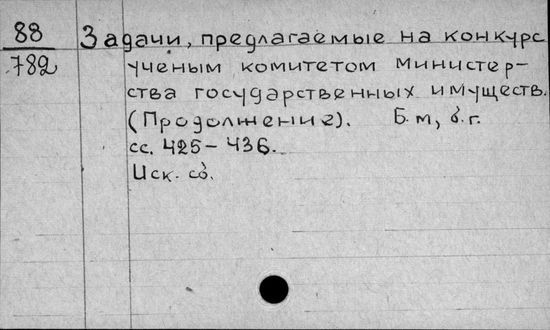 88
782
Задачи, предлагаемые на конкурс
ученым комитетом министер-
ства государственных имуществ.
(Продолжение). Б.м, б.г.
сс. 425-436.
Иск. сб.